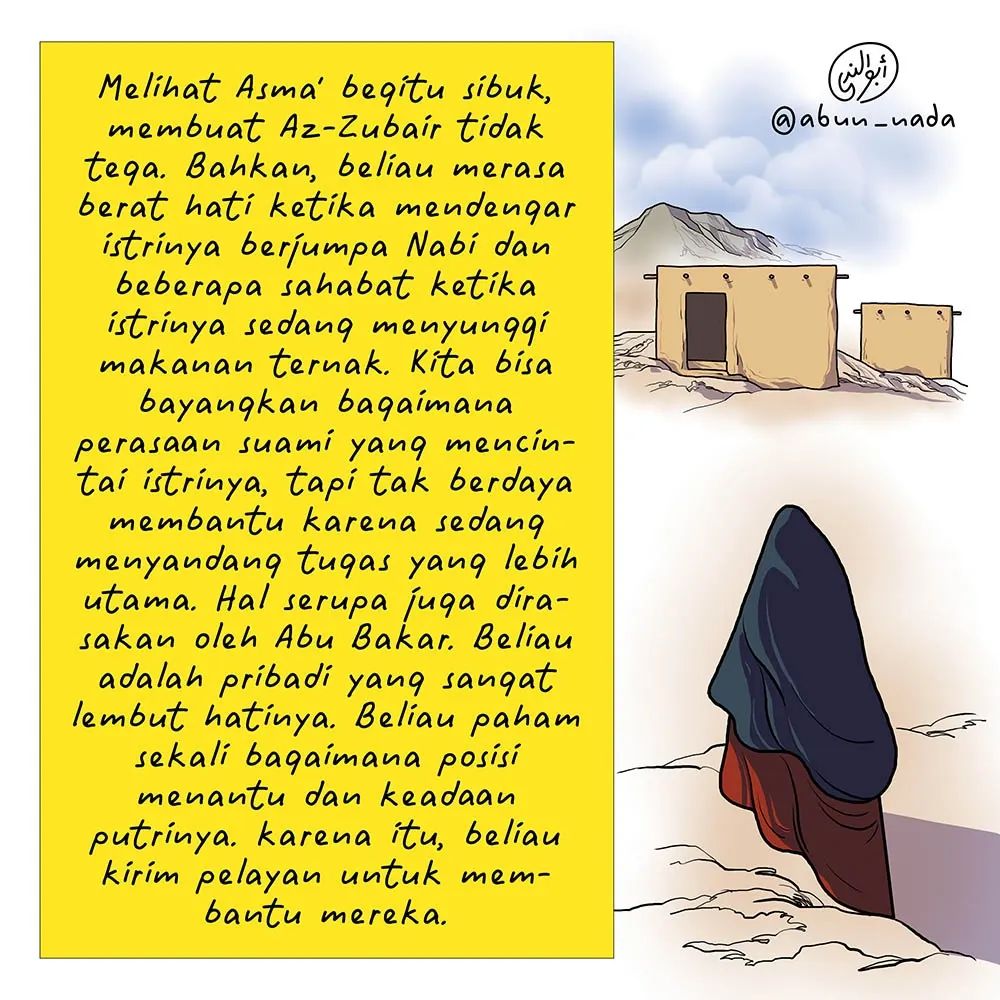 Melihat Asma' begitu sibuk,
membuat Az-Zubair tidak
tega. Bahkan, beliau merasa
berat hati ketika mendengar
istrinya berjumpa Nabi dan
beberapa sahabat ketika
istrinya sedang menyunggi
makanan ternak. Kita bisa
bayangkan bagaimana
perasaan suami yang mencin-
tai istrinya, tapi tak berdaya
membantu karena sedang
menyandang tugas yang lebih
utama. Hal serupa juga dira-
sakan oleh Abu Bakar. Beliau
adalah pribadi yang sangat
lembut hatinya. Beliau paham
sekali bagaimana posisi
menantu dan keadaan
putrinya. karena itu, beliau
kirim pelayan untuk mem-
bantu mereka.
@abun_nada